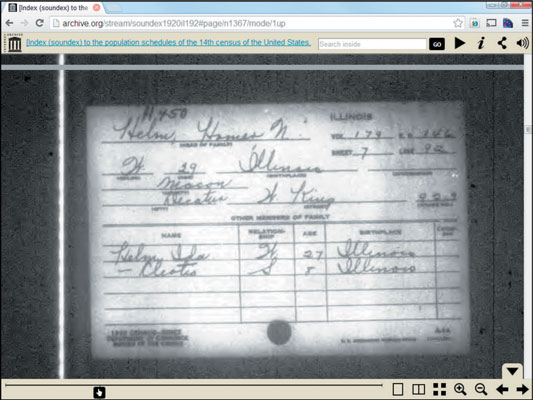 [Index (soundex) to the
archive.org/stream/soundex1920il192#page/n1367/mode/1up
[Index (soundex) to the population schedules of the 14th census of the United States,
Search inside
GO
H450
ILLINOIS
Helm, Homer N.
VOL. 179 E.D. 146
(HEAD OF FAMILY)
SHEET 7 LINE 92
W 29 Illinois
(BIRTHPLACE)
Macon
Decatur W King
(CITY)
OTHER MEMBERS OF FAMILY
NAME RELATION-SHIP AGE BIRTHPLACE
Helm, Ida W 27 Illinois
— Cleatis S 8 Illinois
1920 CENSUS—INDEX
DEPARTMENT OF COMMERCE
BUREAU OF THE CENSUS